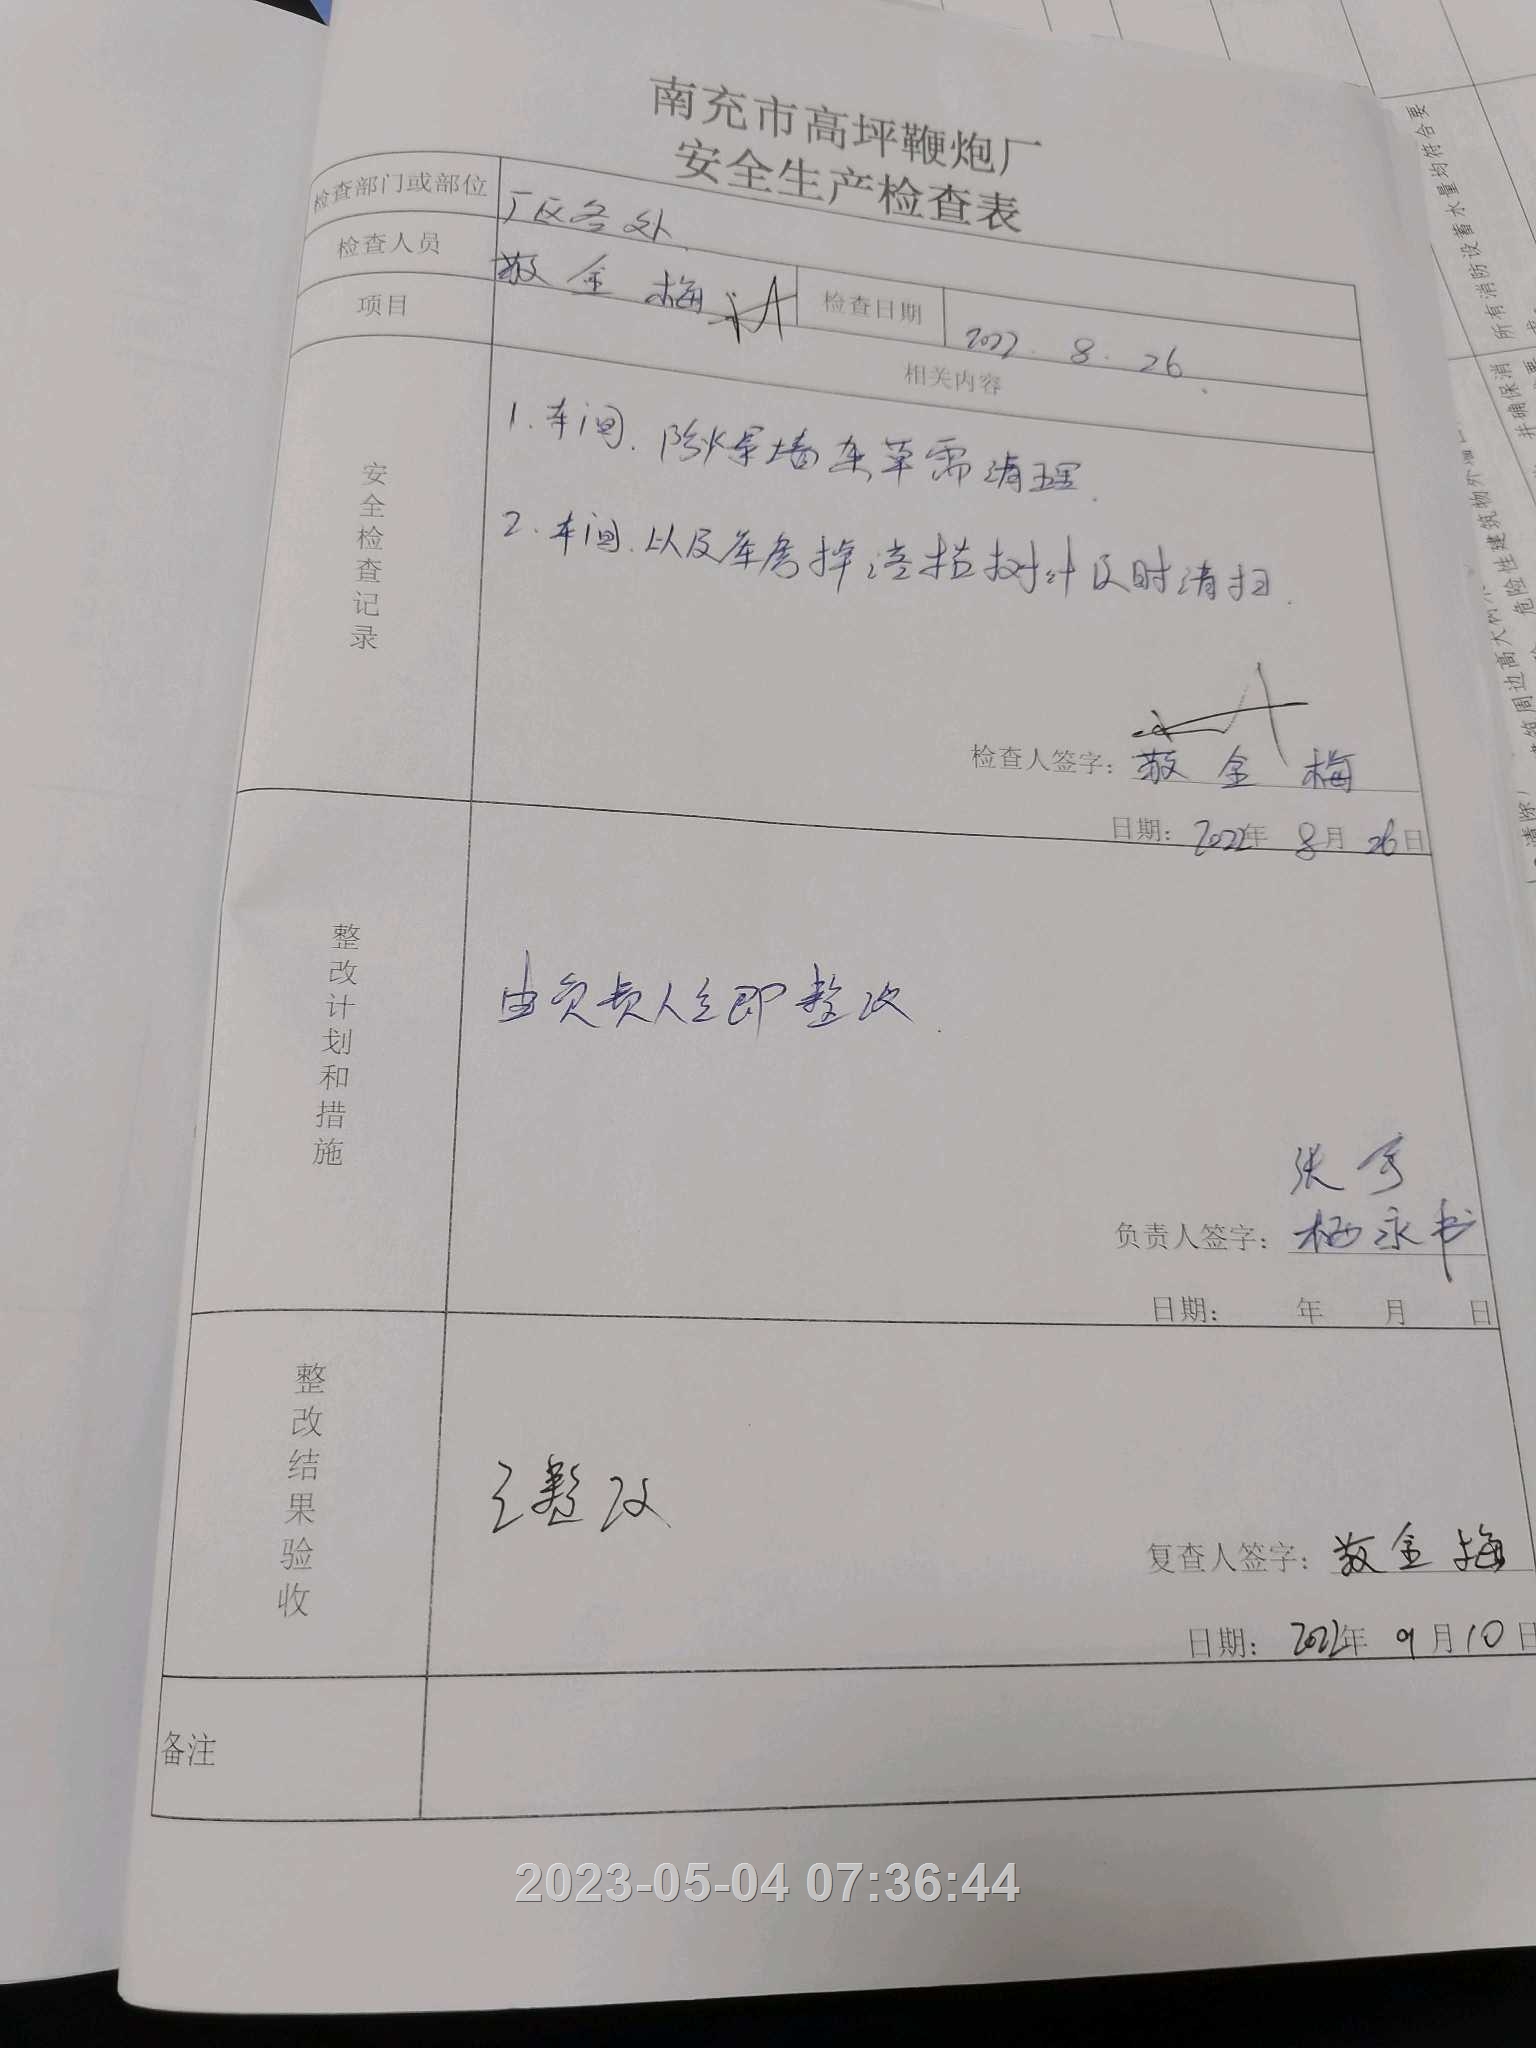 南充市高坪鞭炮厂
安全生产检查表
检查部门或部位 厂区各处
检查人员 敬金梅 检查日期 2022.8.26.
项目 相关内容
安全检查记录
1.车间.防爆墙杂草需清理.
2.车间.以及库房掉落枯树叶及时清扫.
检查人签字: 敬金梅
日期: 2022年 8月 26日
整改计划和措施
由负责人立即整改.
张
负责人签字: 栖永书
日期: 年 月 日
整改结果验收
已整改
复查人签字: 敬金梅
日期: 2022年 9月10日
备注
2023-05-04 07:36:44
所有消防设蓄水量均符合要
并确保消